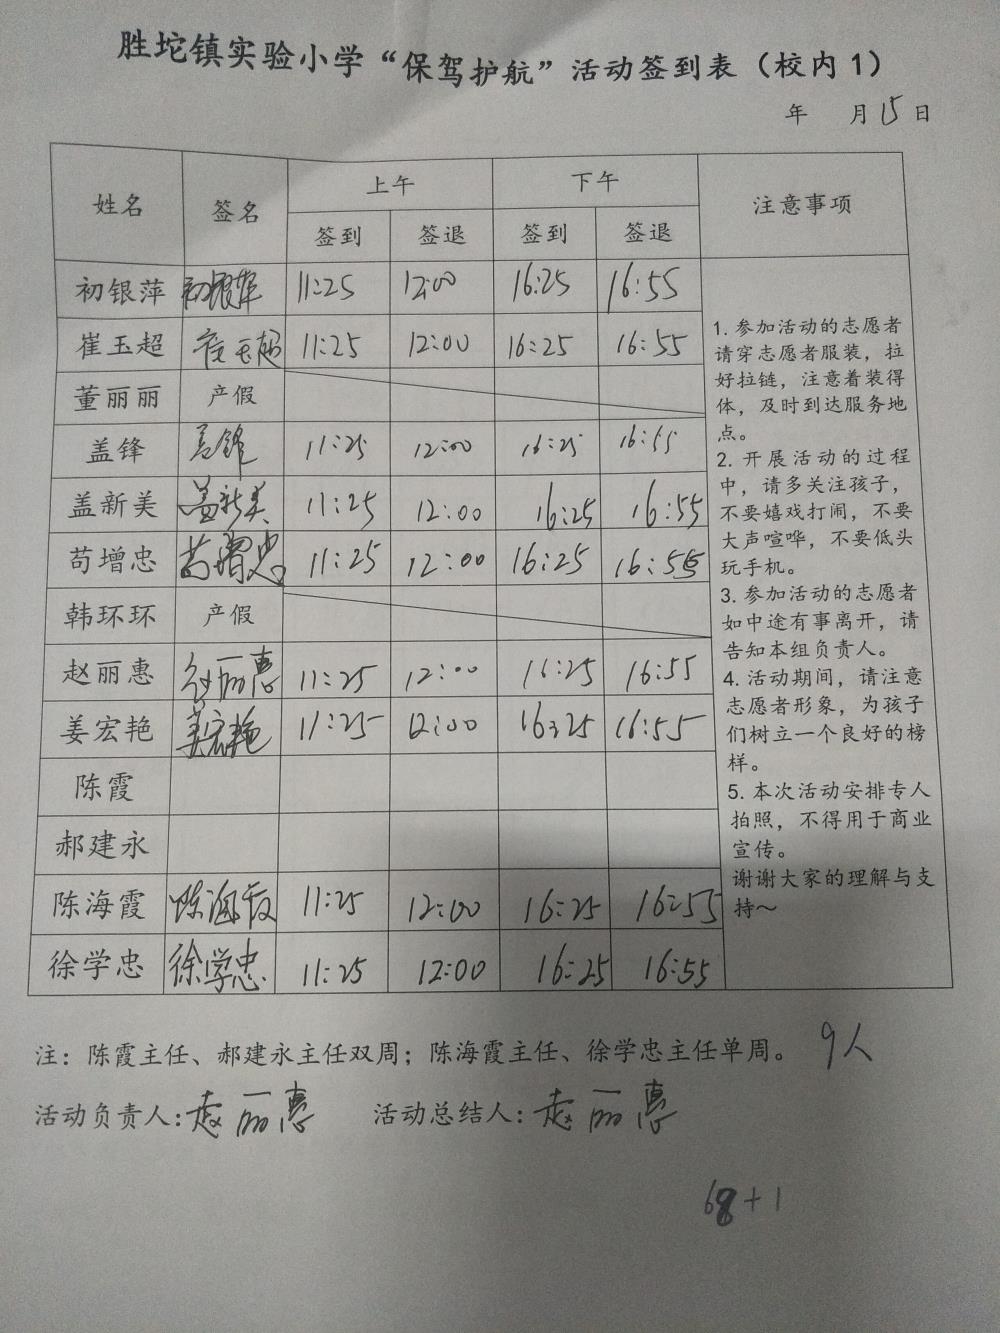 胜坨镇实验小学“保驾护航”活动签到表（校内1）
年 月15日
姓名 签名 上午 下午 注意事项
签到 签退 签到 签退
初银萍 初银萍 11:25 12:00 16:25 16:55
崔玉超 崔玉超 11:25 12:00 16:25 16:55
董丽丽 产假
盖锋 盖锋 11:25 12:00 16:25 16:55
盖新美 盖新美 11:25 12:00 16:25 16:55
苟增忠 苟增忠 11:25 12:00 16:25 16:55
韩环环 产假
赵丽惠 赵丽惠 11:25 12:00 16:25 16:55
姜宏艳 姜宏艳 11:25 12:00 16:25 16:55
陈霞
郝建永
陈海霞 陈海霞 11:25 12:00 16:25 16:55
徐学忠 徐学忠 11:25 12:00 16:25 16:55
1. 参加活动的志愿者
请穿志愿者服装，拉
好拉链，注意着装得
体，及时到达服务地
点。
2. 开展活动的过程
中，请多关注孩子，
不要嬉戏打闹，不要
大声喧哗，不要低头
玩手机。
3. 参加活动的志愿者
如中途有事离开，请
告知本组负责人。
4. 活动期间，请注意
志愿者形象，为孩子
们树立一个良好的榜
样。
5. 本次活动安排专人
拍照，不得用于商业
宣传。
谢谢大家的理解与支
持～
注：陈霞主任、郝建永主任双周；陈海霞主任、徐学忠主任单周。 9人
活动负责人:赵丽惠 活动总结人:赵丽惠
68+1